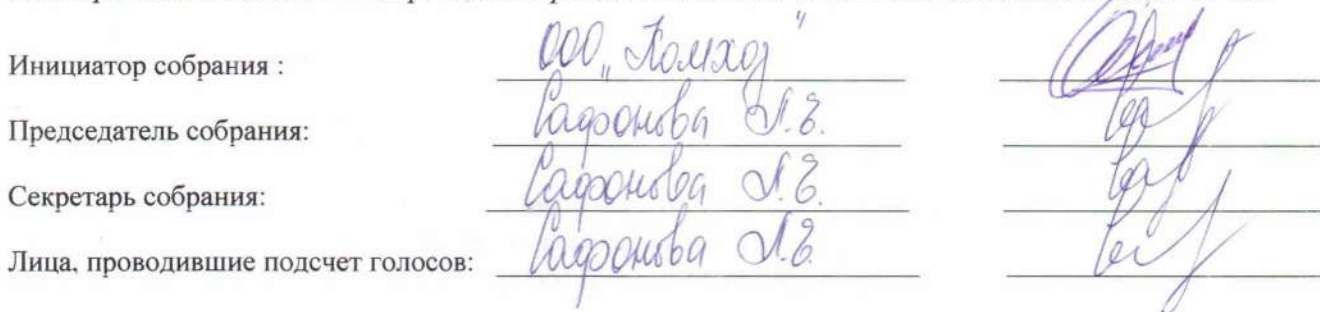 Инициатор собрания : ООО „Комхоз"
Председатель собрания: Сафонова Л.Е.
Секретарь собрания: Сафонова Л.Е.
Лица, проводившие подсчет голосов: Сафонова Л.Е.